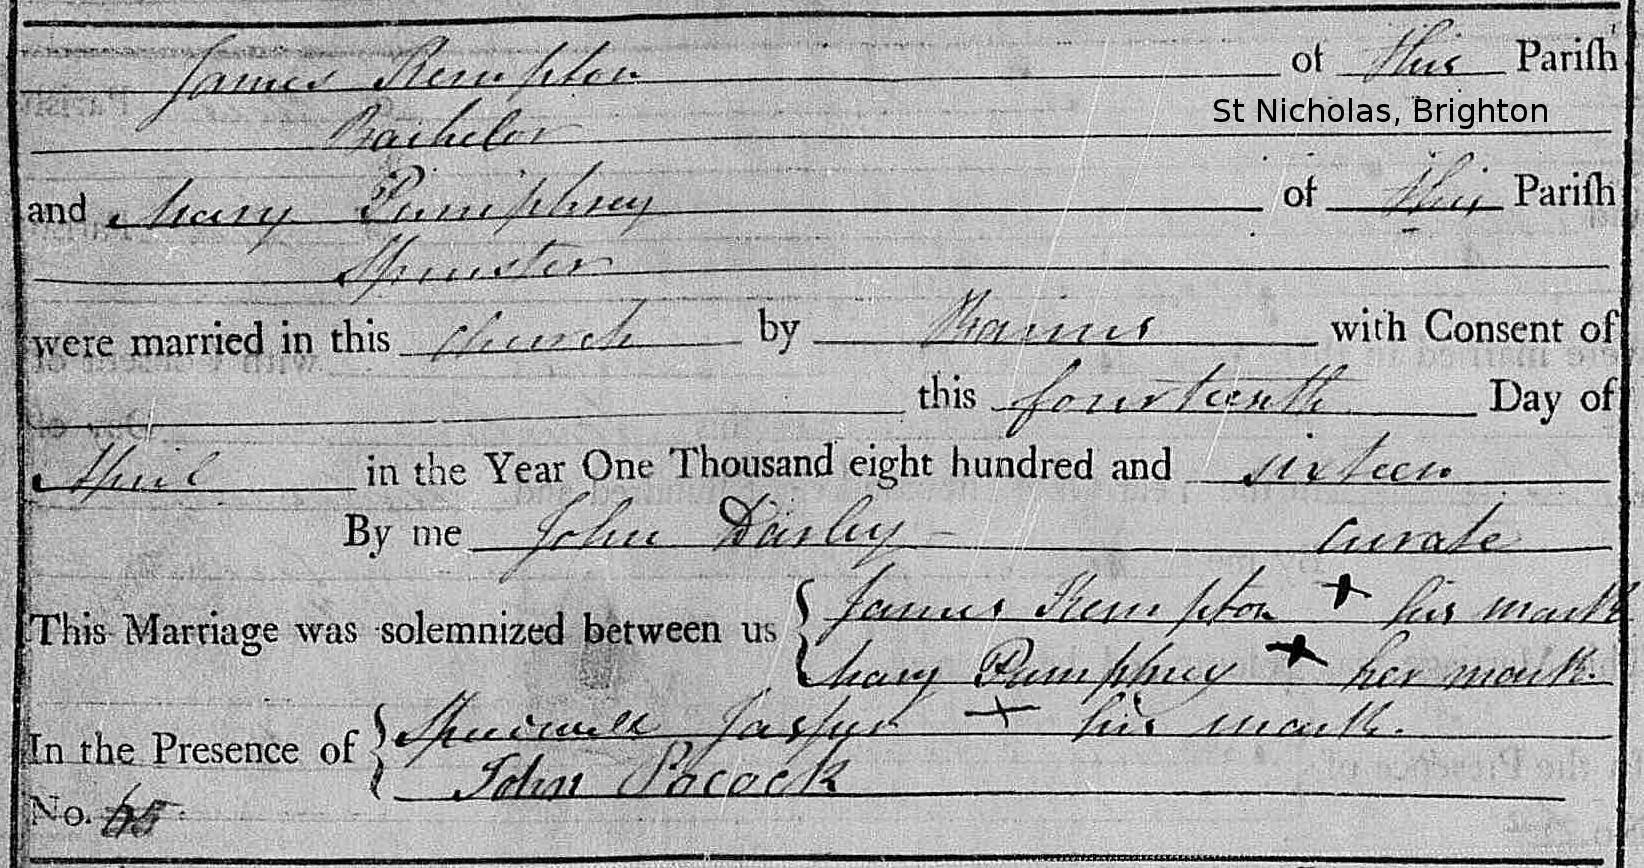 James Kempton of this Pariſh
St Nicholas, Brighton
Bachelor
and Mary Pumphrey of this Pariſh
Spinster
were married in this Church by Banns with Consent of
this fourteenth Day of
April in the Year One Thousand eight hundred and sixteen
By me John Darby - Curate
This Marriage was solemnized between us { James Kempton + his mark
Mary Pumphrey + her mark.
In the Presence of { Jasper + his mark.
John Pocock
No. 65